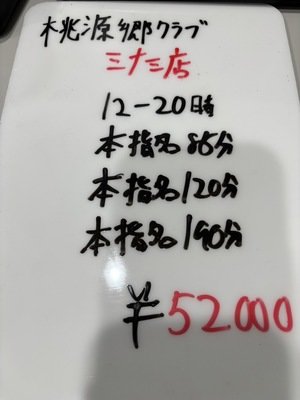 桃源郷クラブ
三十三店
12-20時
本指名85分
本指名120分
本指名190分
¥52000